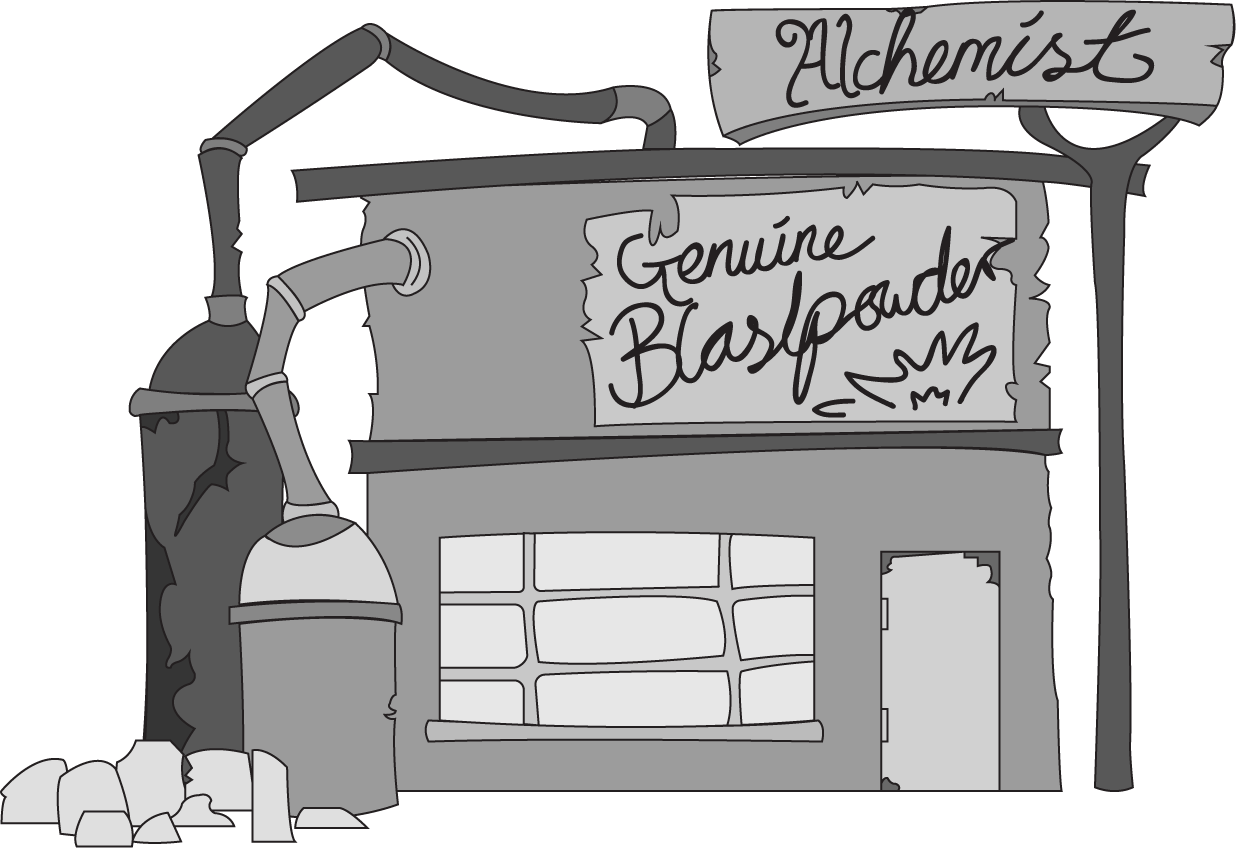 Alchemist
Genuine
Blastpowder